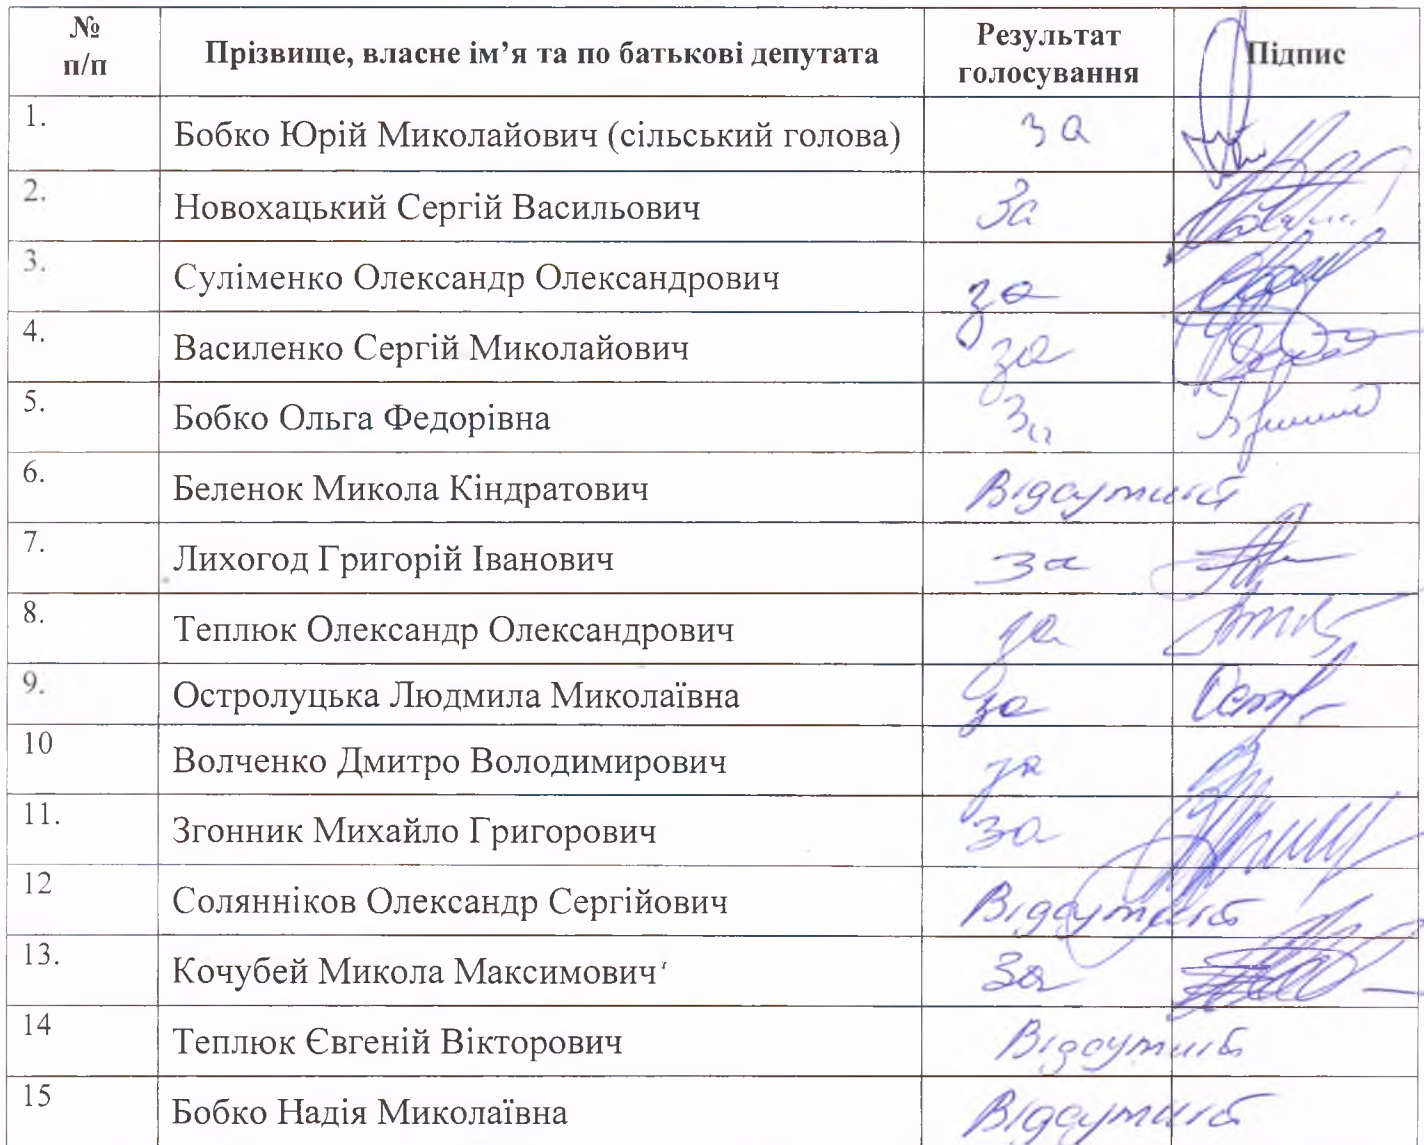 № п/п Прізвище, власне ім’я та по батькові депутата Результат голосування Підпис
1. Бобко Юрій Миколайович (сільський голова) за
2. Новохацький Сергій Васильович За
3. Суліменко Олександр Олександрович за
4. Василенко Сергій Миколайович за
5. Бобко Ольга Федорівна За
6. Беленок Микола Кіндратович Відсутній
7. Лихогод Григорій Іванович за
8. Теплюк Олександр Олександрович за
9. Остролуцька Людмила Миколаївна за
10 Волченко Дмитро Володимирович за
11. Згонник Михайло Григорович за
12 Солянніков Олександр Сергійович Відсутній
13. Кочубей Микола Максимович За
14 Теплюк Євгеній Вікторович Відсутній
15 Бобко Надія Миколаївна Відсутній